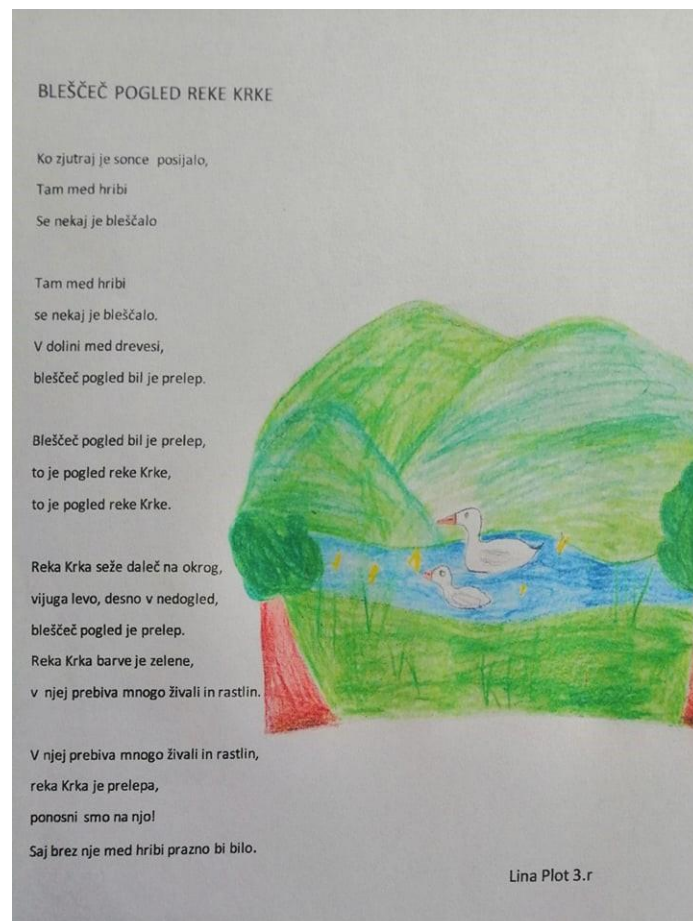 BLEŠČEČ POGLED REKE KRKE
Ko zjutraj je sonce posijalo,
Tam med hribi
Se nekaj je bleščalo
Tam med hribi
se nekaj je bleščalo.
V dolini med drevesi,
bleščeč pogled bil je prelep.
Bleščeč pogled bil je prelep,
to je pogled reke Krke,
to je pogled reke Krke.
Reka Krka seže daleč na okrog,
vijuga levo, desno v nedogled,
bleščeč pogled je prelep.
Reka Krka barve je zelene,
v njej prebiva mnogo živali in rastlin.
V njej prebiva mnogo živali in rastlin,
reka Krka je prelepa,
ponosni smo na njo!
Saj brez nje med hribi prazno bi bilo.
Lina Plot 3.r